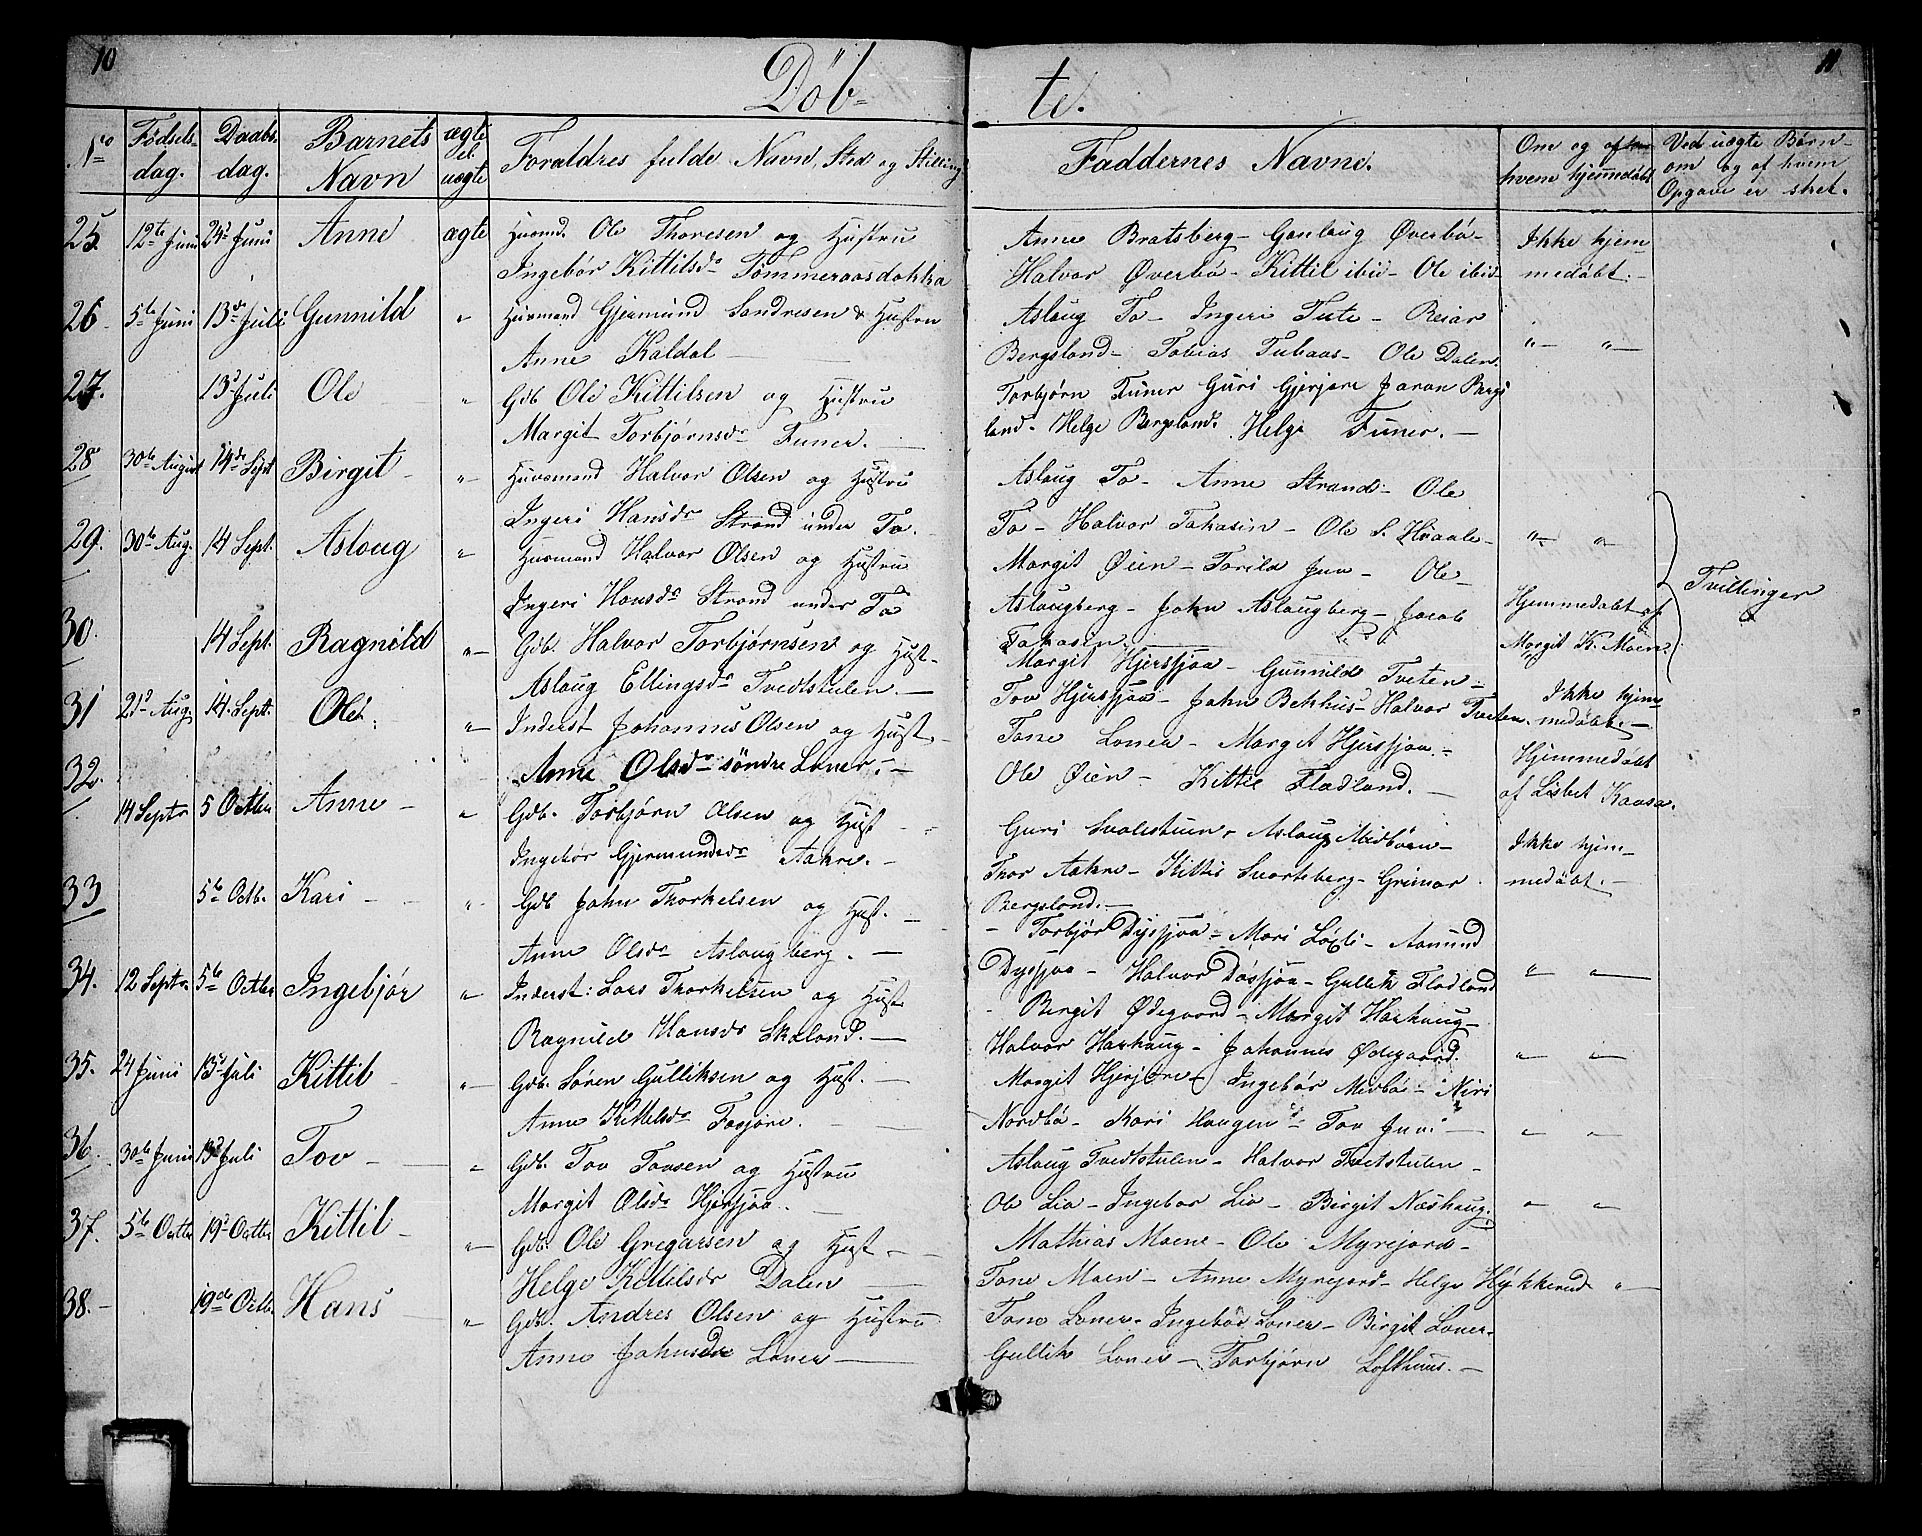 10
11
Döb-
te.
No
Fødsels-
dag.
Daabs-
dag.
Barnets
Navn
ægte
el.
uægte
Foraldres fulde Navn, Sted og Stilling
Faddernes Navne.
Om og af
hvem hjemmedøbt
Ved uægte Børn
om og af hvem
Opgave er skeet.
25. 12te Juni 24d Juni Anne ægte Huusmd. Ole Thoresen og Hustru
Ingebör Kittilsdr Tømmeraasdokka
Anne Bratsberg - Gonlaug Øverbö -
Halvor Øverbö - Kittil ibid - Ole ibid
Ikke hjem-
medöbt. -
26. 5te Juni 13de Juli Gunnild " Huusmand Gjermund Sandresen & Hustru
Anne Kaldal -
Aslaug To - Ingeri Tute - Reiar
Bergsland - Tobias Tubaas - Ole Dalen.
" - " -
27. 13d Juli Ole " Gdb Ole Kittilsen og Hustru
Margit Torbjørnsdr Funer. -
Torbjørn Funer Guri Gjerjore Joran Bergs
land - Helge Bergsland. Helge Funer. -
28 30te August 14de Sept Birgit - " Huusmand Halvor Olsen og Hustru
Ingeri Hansdr Strand under To.
Aslaug To - Anne Strand - Ole
To - Halvor Takasin - Ole S. Hvaale -
" "
29. 30te Aug. 14 Sept. Aslaug " Huusmand Halvor Olsen og Hustru
Ingeri Hansdr Strand under To
Margit Øien - Torild Juv - Ole
Aslaugberg - John Aslaugberg - Jacob
Takasin.
Hjemmedöbt af
Margit K. Moen
Tvillinger
30. 14 Sept. Ragnild " Gdb. Halvor Torbjørnsen og Hust.
Aslaug Ellingsdr Tvedtstulen. -
Margit Hjersjaa - Gunnild Tveten -
Tov Hjersjaa - John Bekhus - Halvor Tveten.
Ikke hjem-
medöbt. -
31 21d Aug. 14. Sept. Ole. " Inderst Johannes Olsen og Hust.
Anne Olsdr söndre Loner. -
Tone Loner - Marget Hjersjaa -
Ole Øien - Kittil Fladland. -
Hjemmedöbt
af Lisbet Kaasa.
32. 14 Septr 5 Octbr Anne - " Gdb. Torbjørn Olsen og Hust
Ingebör Gjermundsdr Aakre. -
Guri Svalestuen - Aslaug Midböen -
Thor Aakre - Kittil Svarteberg - Grimar
Bergsland. -
Ikke hjem-
medöbt. -
33 5te Octb. Kari - " Gdb John Thorkelsen og Hust. -
Anne Olsdr Aslaugberg. -
- Torbjör Dyssjaa - Mari Løxli - Aamund
Dyssjaa - Halvor Dössjaa - Gullik Fladland
" -
34. 12 Septr. 5te Octbr Ingebjör " Inderst: Lars Thorkelsen og Hust
Ragnild Hansdr Skaland. -
Birgit Ødegaard - Marget Haukaug -
Halvor Haukaug - Johannes Ødegaard.
" "
35. 24 Juni 13d Juli Kittil - " Gdb. Sören Gulliksen og Hust. -
Anne Kittelsdr Fosjore. -
Margit Hjerjore - Ingebör Midbö - Niri
Nordbö - Kari Haugen - Tov Juvi -
" "
36. 30te Juni 13d Juli Tov - " Gdb. Tov Tovsen og Hustru
Margit Olsdr Hjersjaa. -
Aslaug Tvedtstulen - Halvor Tvetstulen -
Ole Lio - Ingebor Lio - Birgit Næshaug.
" "
37. 5te Octbr 19d Octbr Kittil - " Gdb. Ole Gregarsen og Hust. -
Helge Kittilsdr Dalen -
Mathias Moene - Ole Myrejord -
Tone Moen - Anne Myrejord - Helge Hykkerud "
38. - 19de Octbr. Hans " Gdb. Andres Olsen og Hustru
Anne Johnsdr Loner -
Tone Loner. Ingebör Loner - Birgit Loner -
Gullik Loner - Torbjørn Lofthuus. -